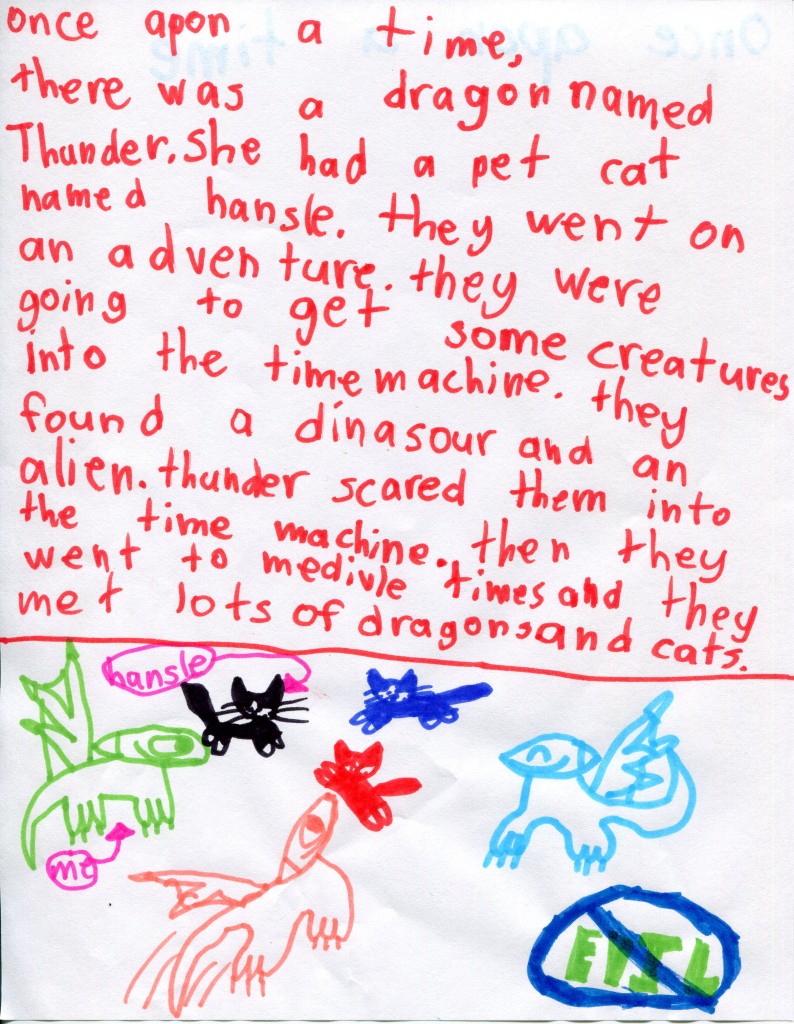 once apon a time,
there was a dragon named
Thunder. She had a pet cat
named hansle. they went on
an adventure. they were
going to get some creatures
into the time machine. they
found a dinasour and an
alien. thunder scared them into
the time machine. then they
went to medivle times and they
met lots of dragons and cats.
hansle
me
EVIL